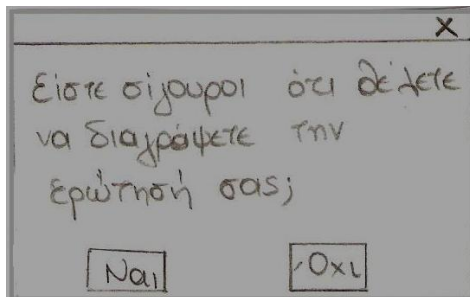 X
Είστε σίγουροι ότι θέλετε
να διαγράψετε την
ερώτησή σας;
Ναι Όχι